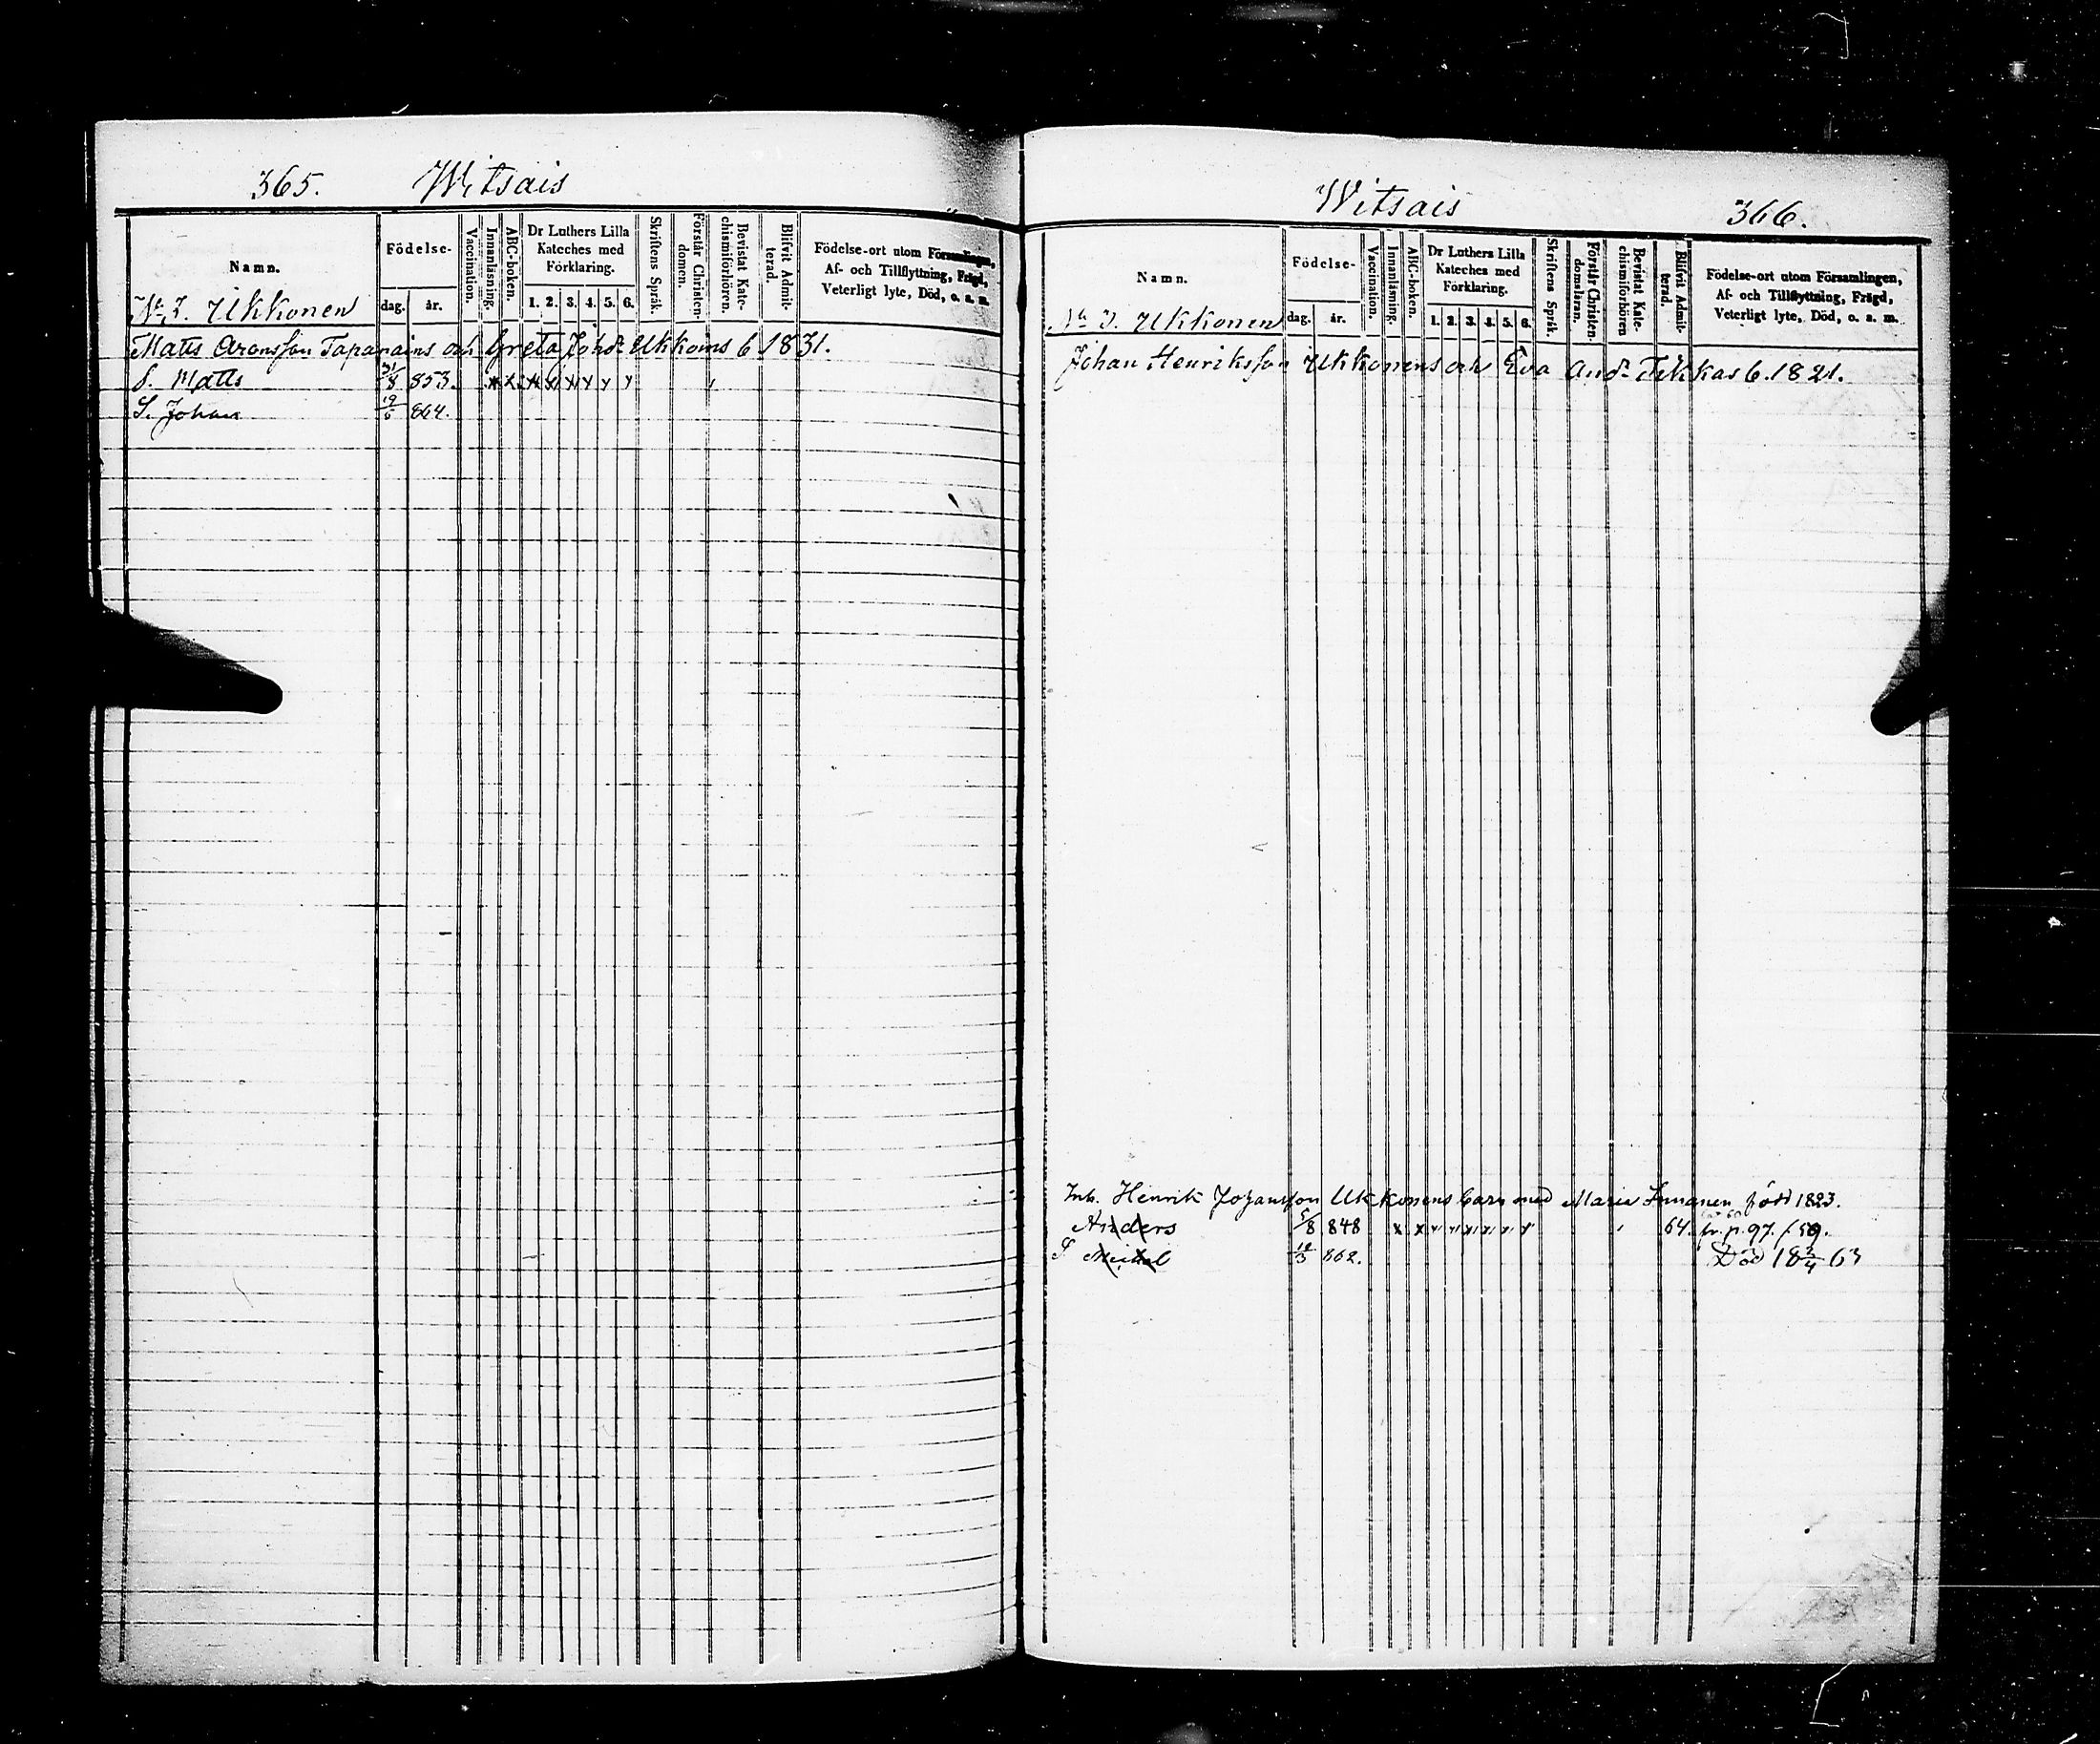 365. Witsais
Namn.
Födelse-
dag. år.
Vaccination.
Innanläsning.
ABC-boken.
Dr Luthers Lilla
Kateches med
Förklaring.
1. 2. 3. 4. 5. 6.
Skriftens Språk.
Förstår Christen-
domen.
Bevistat Kate-
chismiförhören.
Blifvit Admit-
terad.
Födelse-ort utom Församlingen,
Af- och Tillflyttning, Frägd,
Veterligt lyte, Död, o. s. m.
No 3. Ukkonen
Matts Aronsson Taparains och Greta Johdr Ukkoins 6 1831.
S. Matts 31/8 853. x x x x x x x x
S. Johan 19/6 864.
Witsais 366.
Namn.
Födelse-
dag. år.
Vaccination.
Innanläsning.
ABC-boken.
Dr Luthers Lilla
Kateches med
Förklaring.
1. 2. 3. 4. 5. 6.
Skriftens Språk.
Förstår Christen-
domsläran.
Bevistat Kate-
chismiförhören
Blifvit Admit-
terad.
Födelse-ort utom Församlingen,
Af- och Tillflyttning, Frägd,
Veterligt lyte, Död, o. s. m.
No 3. Ukkonen
Johan Henriksson Ukkonens och Eva Andr Tikkas 6. 1821.
Inh. Henrik Johansson Ukkonens barn med Maria Immonen född 1823.
Anders 5/8 848 x x x x x x x x 64. fr. p. 97. / 59.
S Michel 12/3 862. Död 18 3/4 63